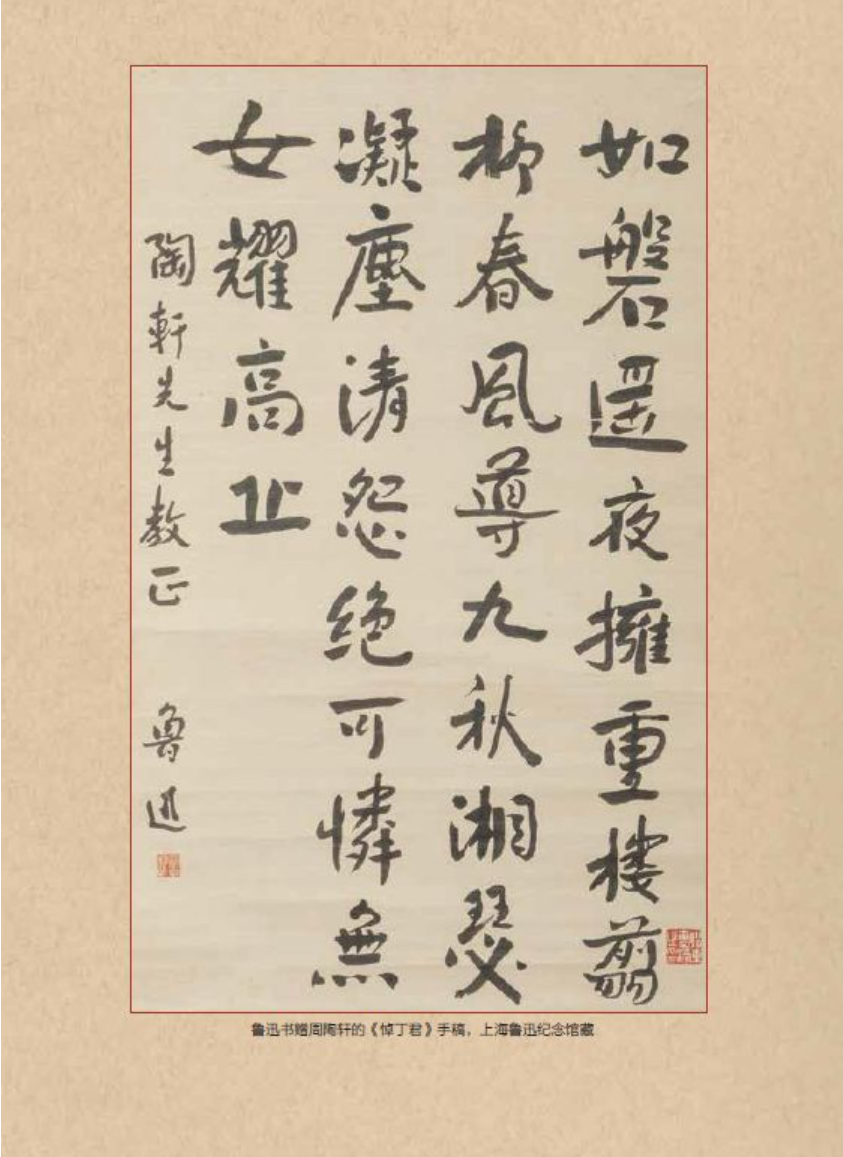 如磐遥夜擁重樓翦
柳春風導九秋湘瑟
凝塵清怨絶可憐無
女耀高丘
陶軒先生教正 魯迅
鲁迅书赠周陶轩的《悼丁君》手稿，上海鲁迅纪念馆藏